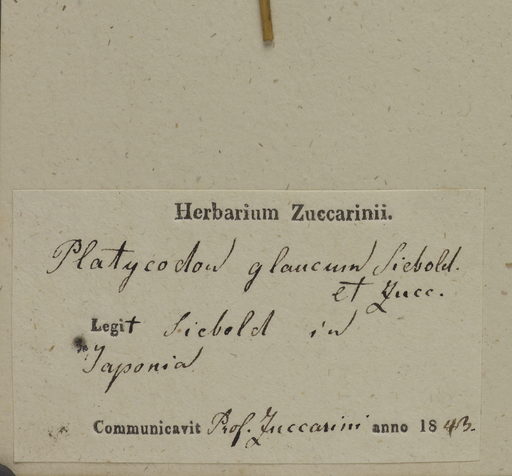 Herbarium Zuccarinii.
Platycodon glaucum Siebold.
et Zucc.
Legit Siebold in
Japonia
Communicavit Prof. Zuccarini anno 1843.